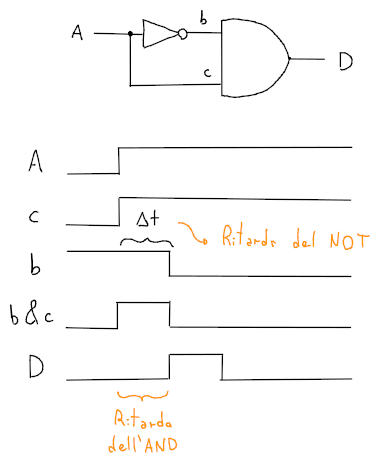 A
b
c
D
A
c
Δt
Ritardo del NOT
b
b&c
D
Ritardo
dell'AND